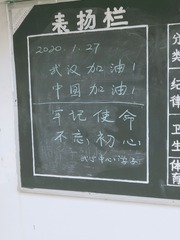 表扬栏
2020.1.27
武汉加油！
中国加油！
牢记使命
不忘初心
分类
纪律
卫生
体育